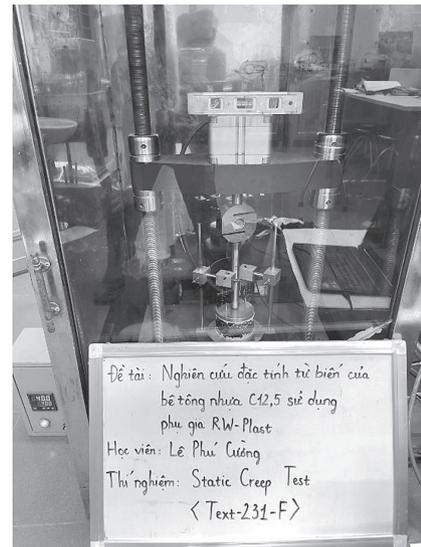 40.0
Đề tài: Nghiên cứu đặc tính từ biến của
bê tông nhựa C12,5 sử dụng
phụ gia RW-Plast
Học viên: Lê Phú Cường
Thí nghiệm: Static Creep Test
<Text-231-F>